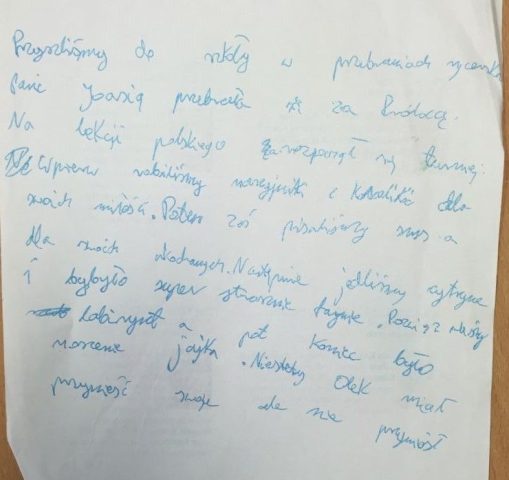 Przyszliśmy do szkoły w przebraniach rycerski
Pani Joasia przebrała się za Królową.
Na lekcji polskiego rozpoczął się turniej:
Wpierw robiliśmy naszyjniki z koralików dla
swoich miłości. Potem zaś pisaliśmy sms-a
dla swoich ukochanych. Następnie jedliśmy cytrynę
i było super strasznie fajnie.
labirynt a pot koniec było
noszenie jajka. Niestety Olek miał
przynieść swoje ale nie przyniósł